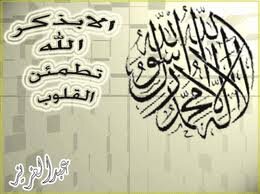 الابذكر
الله
تطمئن
القلوب
لا إله إلا الله محمد رسول الله
عبدالعزيز